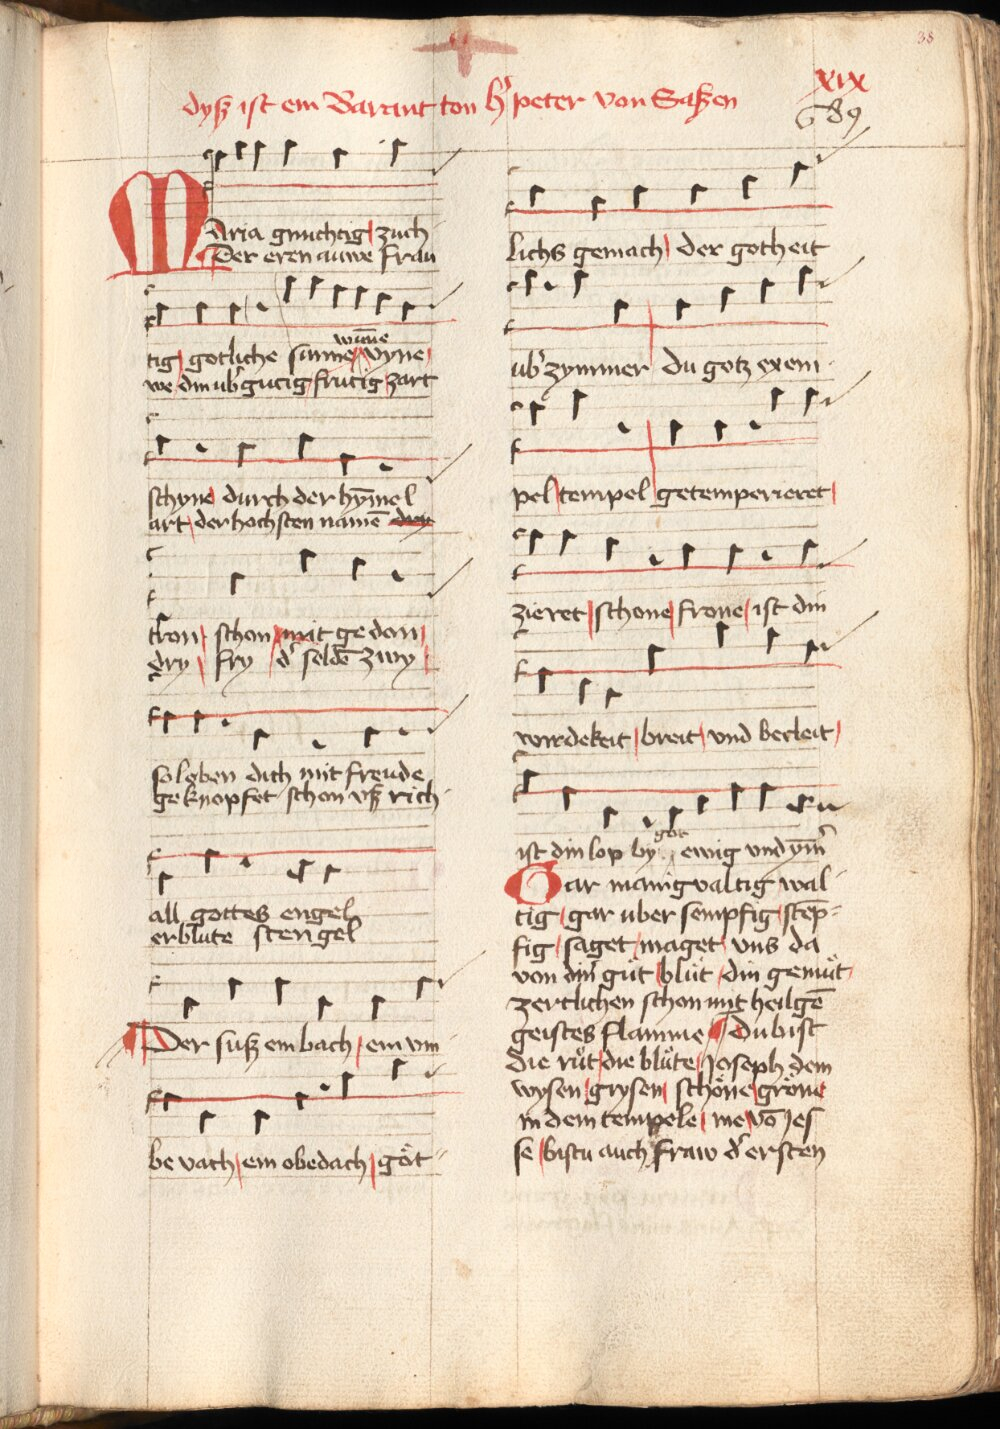 38
xix
dyß ist ein Barant ton hʼ peter von Saßen
689
MAria gnuchtig zuch
Der eren auwe frau
tig gotliche sunne wūne vyne
we din ubʼ gutig frutig zart
schyne durch der hȳmel
art der hochsten namē drey
tron schon mit gedon
dry fry dʼ seldē zwy
so loben dich mit freude
geknopfet schon vß rich
all gottes engel
erblute stengel
Der suß ein bach ein vm
be vach ein obedach gôt
lichs gemach der gotheit
ubʼ zymmer du gotz exem
pel tempel getemperieret
zieret schone frone ist din
wirdekeit breit und becleit
ist din lop by got ewig und ym̄
Gar manigvaltig wal
tig gar uber sempfig stēp
fig saget maget uns da
von dinʼ gůt blůt din gemůt
zertlichen schon mit heilgē
geistes flamme Du bist
die růt die blůte Joseph dem
wysen grysen schöne gröne
in dem tempele me võ Jes
se bistu auch fraw dʼ ersten